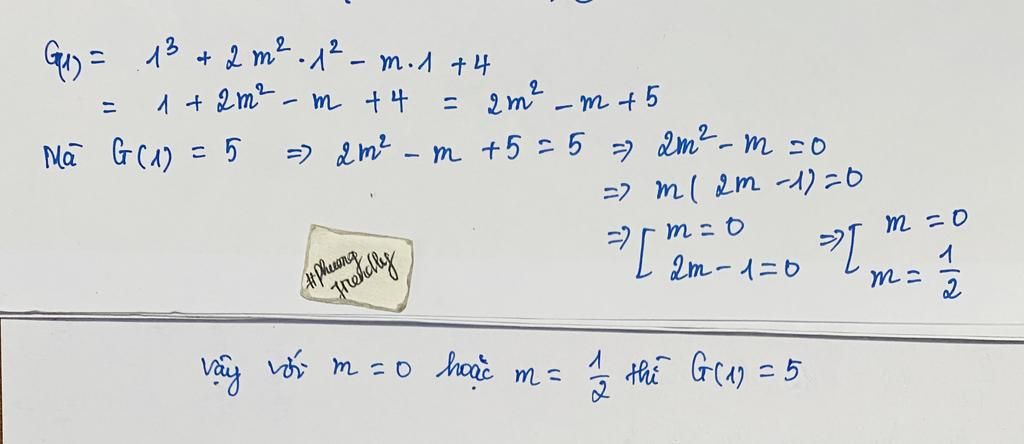 G(1) = 1³ + 2m² · 1² - m · 1 + 4
= 1 + 2m² - m + 4 = 2m² - m + 5
Mà G(1) = 5 => 2m² - m + 5 = 5 => 2m² - m = 0
=> m(2m - 1) = 0
=> [ m = 0 => [ m = 0
2m - 1 = 0 m = 1/2
#phuong
vậy với m = 0 hoặc m = 1/2 thì G(1) = 5